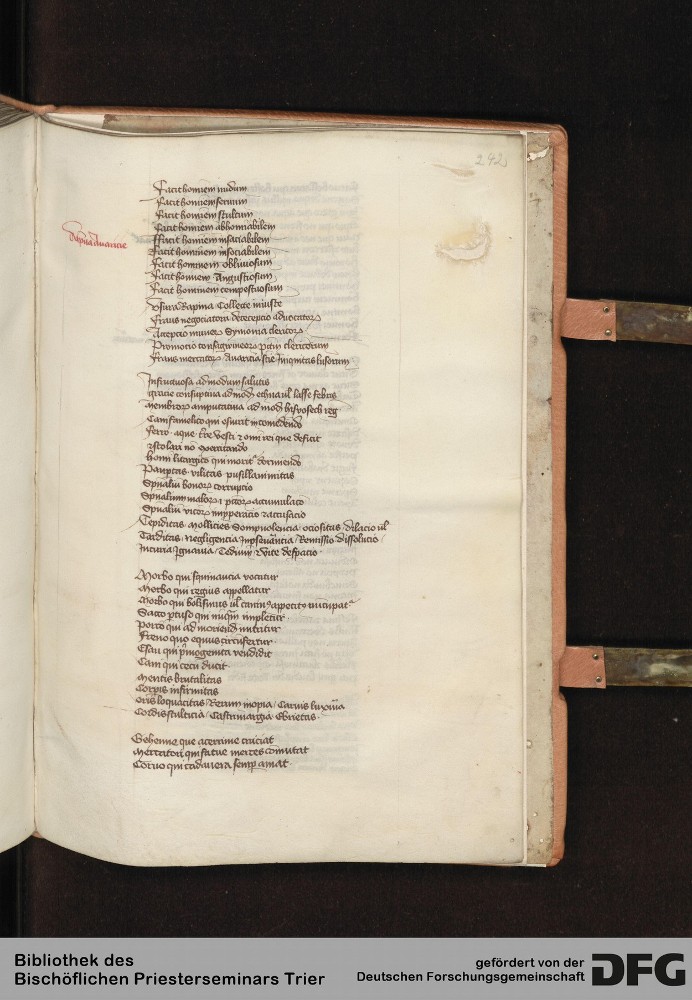 292
Facit hominem nudum
Facit hominem seruum
Facit hominem stultum
Facit hominem abhominabilem
Auaricie
Ffacit hominem insaciabilem
Facit hominem insociabilem
Facit hominem obliuiosum
Facit hominem Angustiosum
Facit hominem tempestuosum
Vsura Rapina Collecte iniuste
fraus negociatorum deceptio aduocatorum
Accepcio munerum Symonia clericorum
Promocio consanguineorum clericorum
fraus mercatorum Auaricia Iniquitas lusorum
Infructuosa ad modum salutis
gracie consumptiua ad modum ethica ul lasse febris
Membrorum amputatiua ad modum
Cani famelico qui esurit in comedendo
ferro aque terre vesti et omni rei que deficit
scolari non
homini litargico qui moritur dormiendo
Paupertas vilitas pusillanimitas
Spiritualium bonorum corruptio
Spiritualium malorum accumulacio
Spiritualium vicorum accusacio
Tepiditas Mollicies Sompnolencia ociositas dilacio ul
Tarditas Negligencia Inperseuerantia Remissio dissolucio
Incuria Ignauia Tedium vite desperacio
Morbo qui squinancia vocatur
Morbo qui regius appellatur
Morbo qui bolismus ul caninus appetitus nuncupatur
Sacco pertuso qui nunquam impletur
Porco qui ad moriendum nutritur
Freno quo equus circufertur
Esau qui primogenita vendidit
Cani qui cecum ducit
Mentis brutalitas
Corporis infirmitas
Oris loquacitas Rerum inopia Carnis luxuria
Cordis stulticia Castrimargia Ebrietas
Gehenne que acerrime cruciat
Mercatori qui fatue merces comutat
Coruo qui cadauera semper amat
Bibliothek des
Bischöflichen Priesterseminars Trier
gefördert von der
Deutschen Forschungsgemeinschaft
DFG